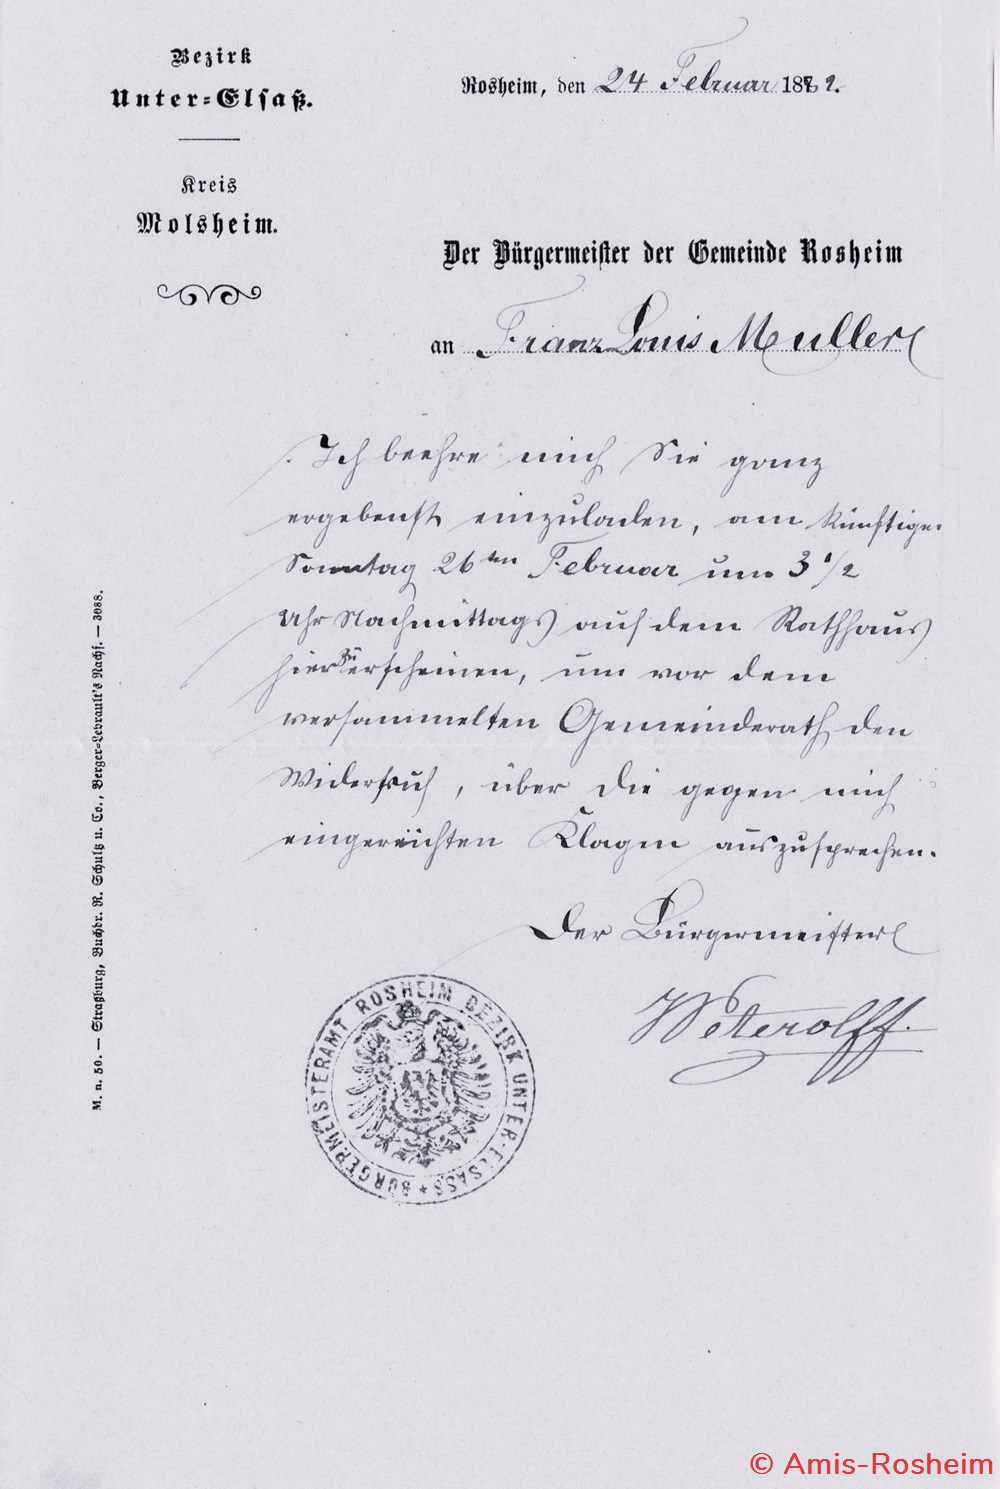 Bezirk
Unter-Elsaß.
Kreis
Molsheim.
Rosheim, den 24 Februar 1882.
Der Bürgermeister der Gemeinde Rosheim
an Franz Louis Muller
Ich beehre mich Sie ganz
ergebenst einzuladen, am künftigen
Sonntag 26ten Februar um 3 1/2
Uhr Nachmittags auf dem Rathhaus
hier zu erscheinen, um vor dem
versammelten Gemeinderath den
Widerruf, über die gegen mich
eingereichten Klagen auszusprechen.
Der Bürgermeister
Weterolff.
BÜRGERMEISTERAMT ROSHEIM BEZIRK UNTER-ELSASS *
M. n. 50. — Straßburg, Buchdr. R. Schultz u. Co., Berger-Levrault's Nachf. — 3088.
© Amis-Rosheim